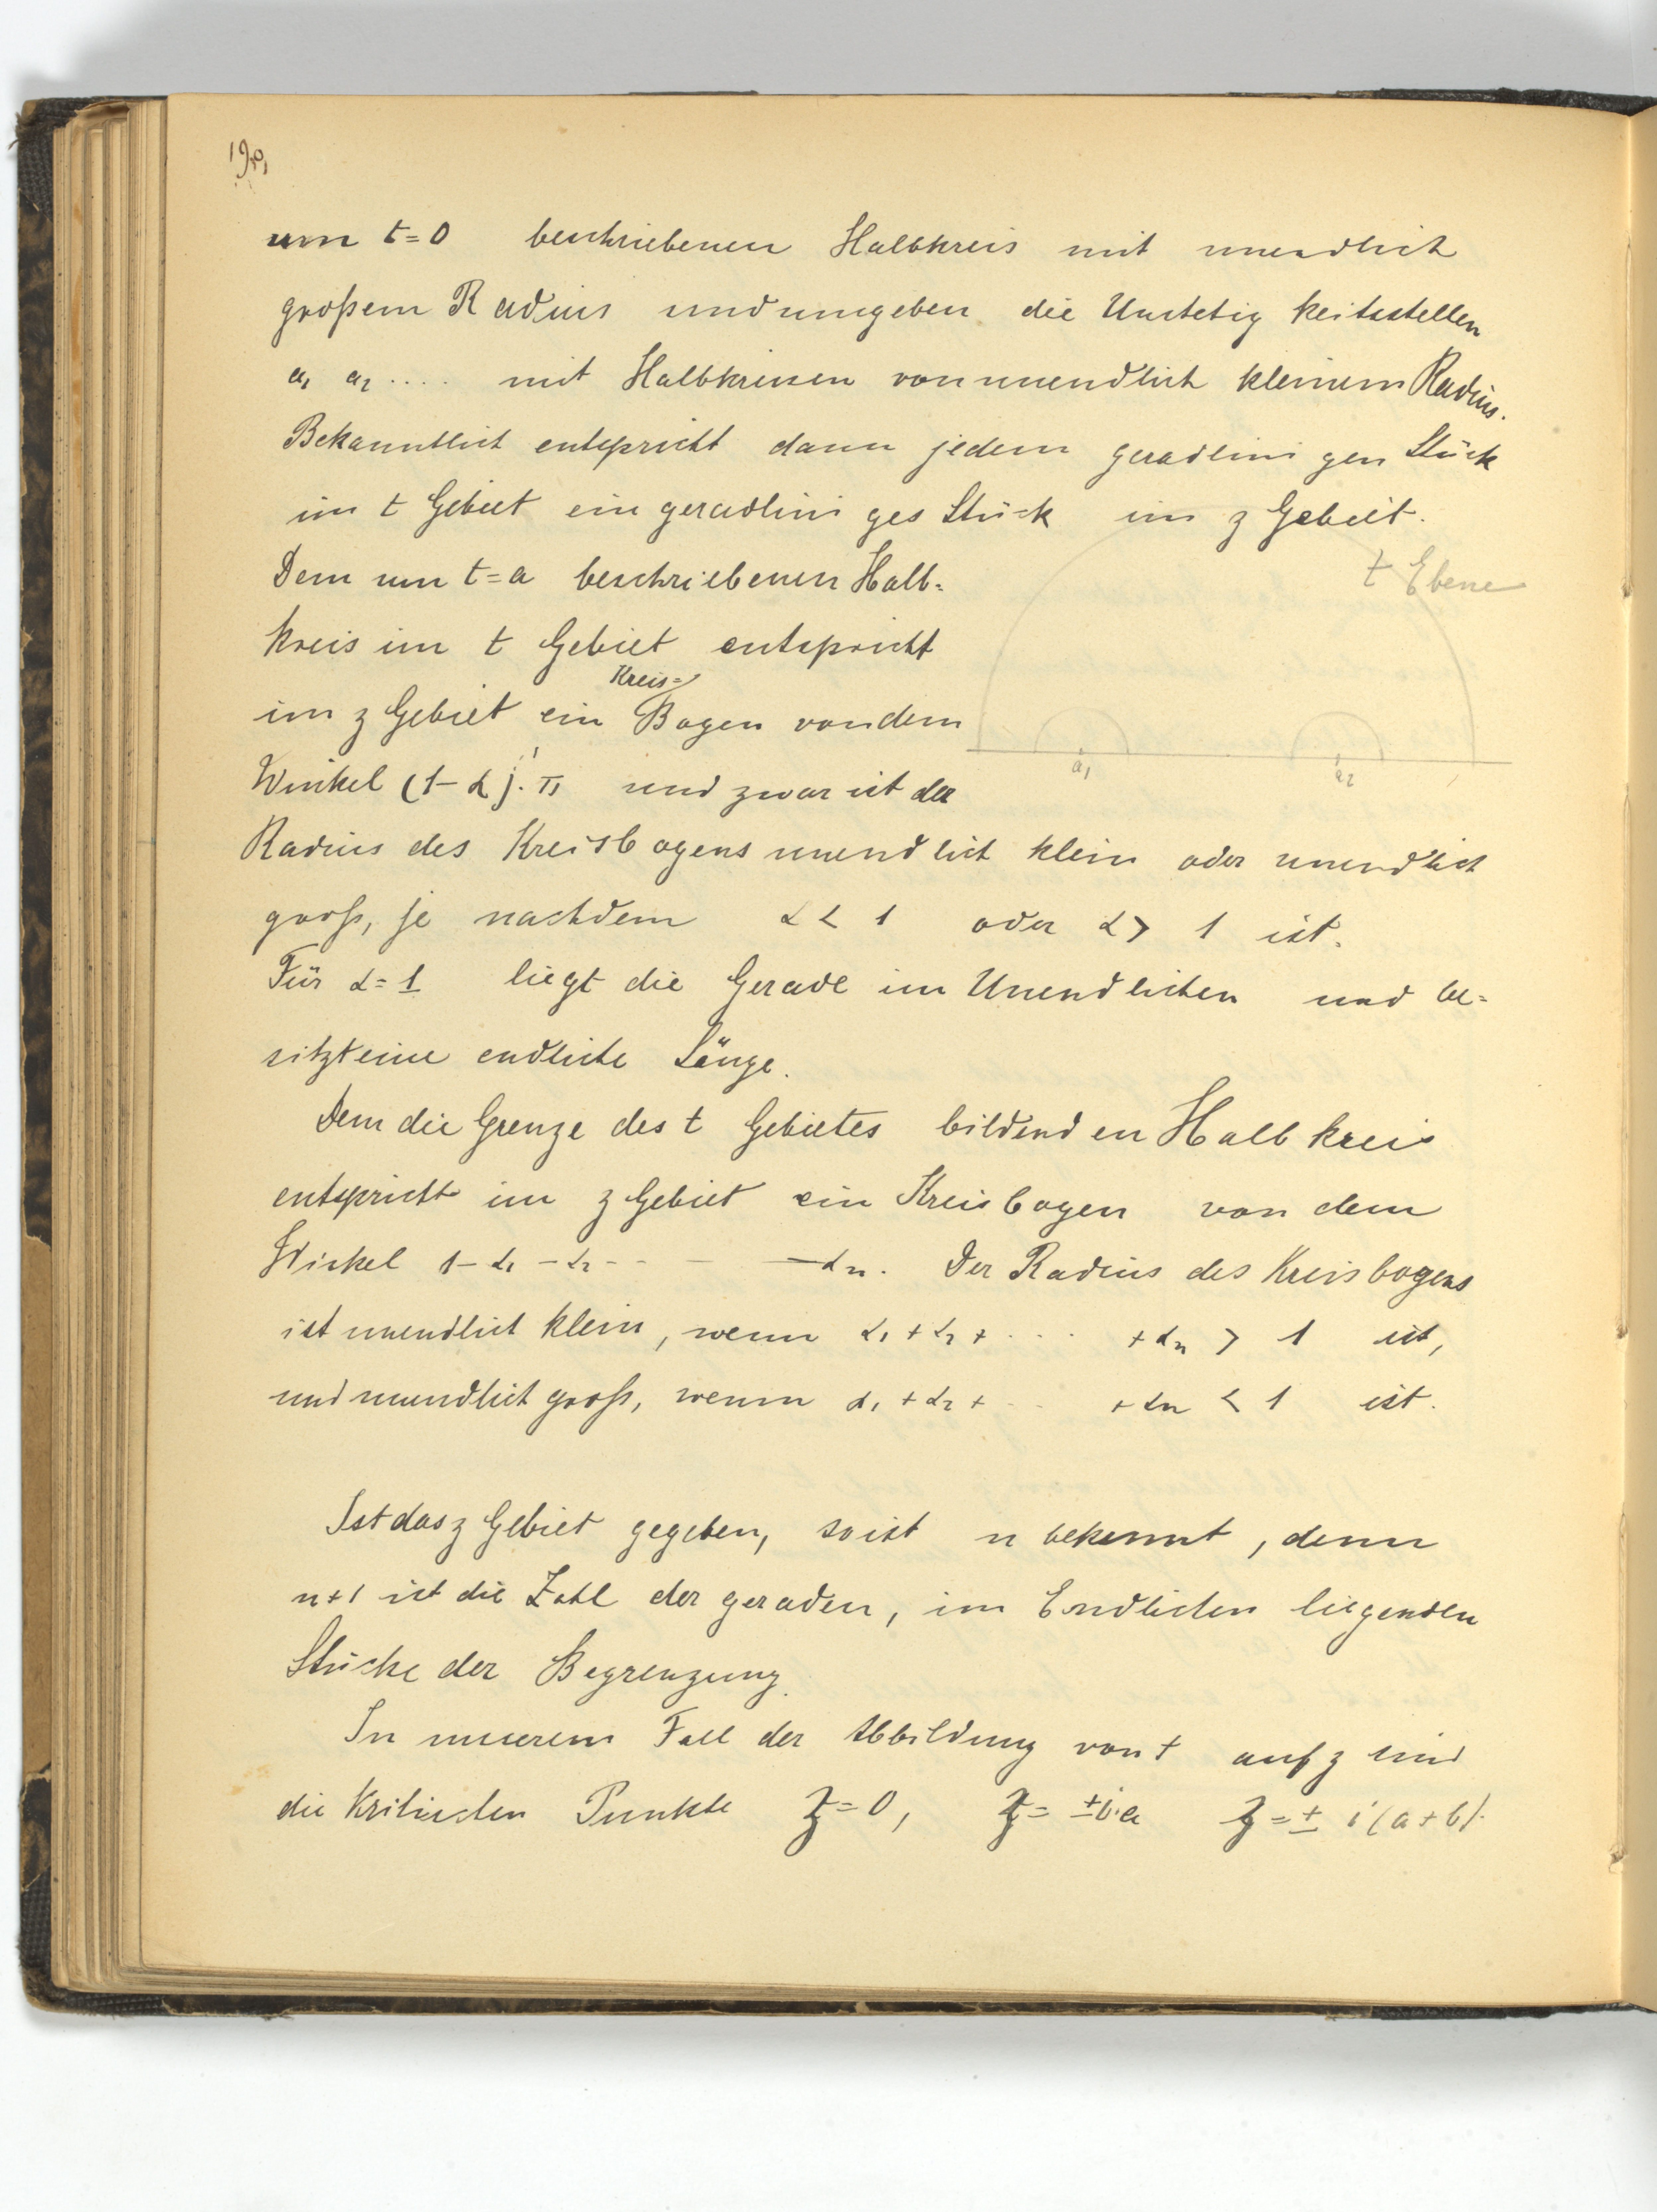 um t=0 beschriebenen Halbkreis mit unendlich
großem Radius und umgeben die Unstetigkeitsstellen
a₁ a₂ .... mit Halbkreisen von unendlich kleinem Radius.
Bekanntlich entspricht dann jedem geradlinigen Stück
im t Gebiet ein geradliniges Stück im z Gebeit.
t Ebene
Dem um t=a beschriebenen Halb=
kreis im t Gebiet entspricht
im z Gebiet ein Kreis= Bogen von dem
a₁ a₂
Winkel (1-α).π und zwar ist der
Radius des Kreisbogens unendlich klein oder unendlich
groß, je nachdem α < 1 oder α > 1 ist.
Für α=1 liegt die Gerade im Unendlichen und be=
sitzt eine endliche Länge.
Dem die Grenze des t Gebietes bildenden Halbkreis
entspricht im z Gebiet ein Kreisbogen von dem
Winkel 1-α₁-α₂- - - -αn. Der Radius des Kreisbogens
ist unendlich klein, wenn α₁+α₂+ .... +αn > 1 ist,
und unendlich groß, wenn α₁+α₂+ .. +αn < 1 ist.
Ist das z Gebiet gegeben, so ist n bekannt, denn
n+1 ist die Zahl der geraden, im Endlichen liegenden
Stücke der Begrenzung.
In unserem Fall der Abbildung von t auf z sind
die Kritischen Punkte z=0, z= ±i·a z=± i(a+b).